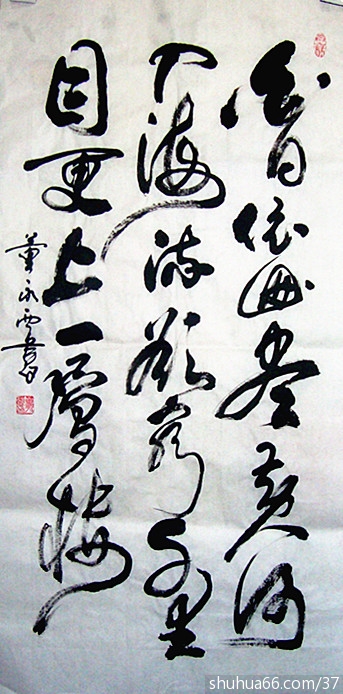 白日依山盡黄河
入海流欲窮千里
目更上一層樓
董永西書
shuhua66.com/37